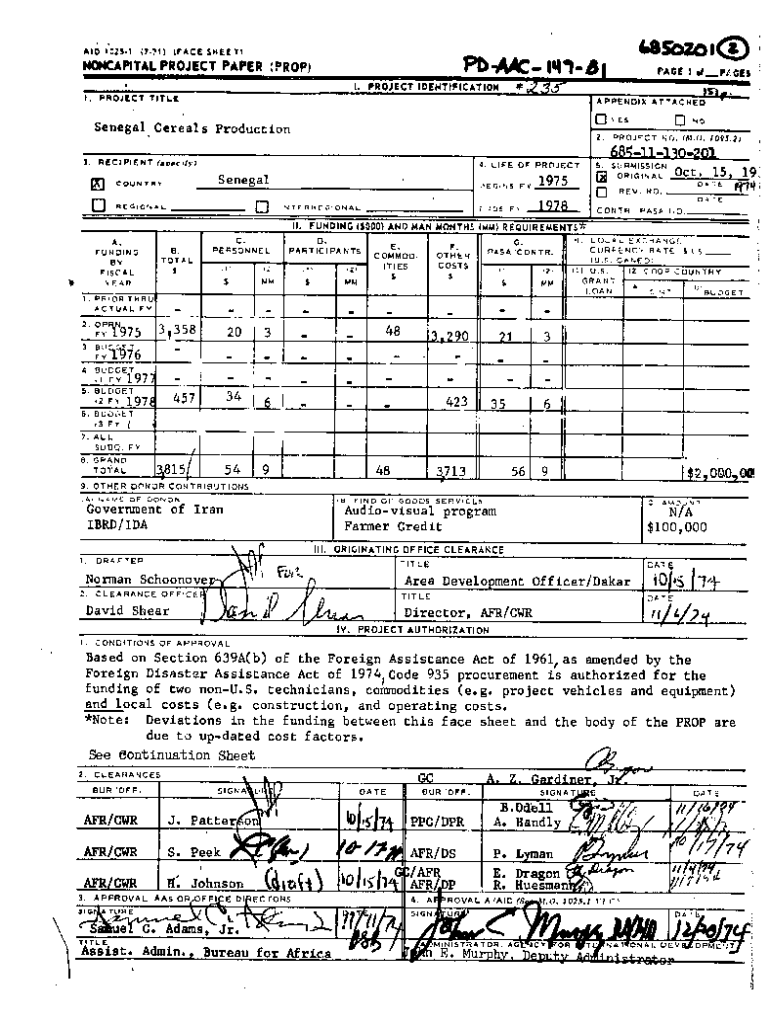 6850201 (2)
AID 1025-1 (7-71) (FACE SHEET)
NONCAPITAL PROJECT PAPER (PROP)
PD-AAC-147-B1
PAGE 1 of __ PAGES
I. PROJECT IDENTIFICATION #235
151p.
1. PROJECT TITLE
Senegal Cereals Production
APPENDIX ATTACHED
YES NO
2. PROJECT NO. (M.O. 1095.2)
685-11-130-201
3. RECIPIENT (specify)
X COUNTRY Senegal
REGIONAL INTERREGIONAL
4. LIFE OF PROJECT
BEGINS FY 1975
ENDS FY 1978
5. SUBMISSION
X ORIGINAL Oct. 15, 19
1974
DATE
REV. NO.
DATE
CONTR. PASA NO.
II. FUNDING ($000) AND MAN MONTHS (MM) REQUIREMENTS*
A. FUNDING BY FISCAL YEAR
B. TOTAL $
C. PERSONNEL (1) $ (2) MM
D. PARTICIPANTS (1) $ (2) MM
E. COMMODITIES $
F. OTHER COSTS $
G. PASA CONTR. (1) $ (2) MM
H. LOCAL EXCHANGE CURRENCY RATE: $ US
(U.S. OWNED)
(1) U.S. GRANT LOAN
(2) COOP COUNTRY
A. JOINT
B. BUDGET
1. PRIOR THRU ACTUAL FY - - - - - - - - -
2. OPRN FY 1975 3,358 20 3 - - 48 3,290 21 3
3. BUDGET FY 1976 - - - - - - - - -
4. BUDGET +1 FY 1977 - - - - - - - - -
5. BUDGET +2 FY 1978 457 34 6 - - - 423 35 6
6. BUDGET +3 FY
7. ALL SUBQ. FY
8. GRAND TOTAL 3,815 54 9 48 3,713 56 9 $2,000,00
9. OTHER DONOR CONTRIBUTIONS
(A) NAME OF DONOR
(B) KIND OF GOODS SERVICES
(C) AMOUNT
Government of Iran Audio-visual program N/A
IBRD/IDA Farmer Credit $100,000
III. ORIGINATING OFFICE CLEARANCE
1. DRAFTER
Norman Schoonover For
TITLE
Area Development Officer/Dakar
DATE
10/15/74
2. CLEARANCE OFFICER
David Shear
TITLE
Director, AFR/CWR
DATE
11/6/74
IV. PROJECT AUTHORIZATION
1. CONDITIONS OF APPROVAL
Based on Section 639A(b) of the Foreign Assistance Act of 1961, as amended by the
Foreign Disaster Assistance Act of 1974, Code 935 procurement is authorized for the
funding of two non-U.S. technicians, commodities (e.g. project vehicles and equipment)
and local costs (e.g. construction, and operating costs.
*Note: Deviations in the funding between this face sheet and the body of the PROP are
due to up-dated cost factors.
See Continuation Sheet
2. CLEARANCES
GC A. Z. Gardiner, Jr.
BUR OFF. SIGNATURE DATE BUR OFF. SIGNATURE DATE
B.Odell
AFR/CWR J. Patterson 10/15/74 PPC/DPR A. Handly
AFR/CWR S. Peek 10-17-74 AFR/DS P. Lyman 10/17/74
GC/AFR E. Dragon
AFR/CWR H. Johnson (draft) 10/15/74 AFR/DP R. Huesmann
3. APPROVAL AAS OR OFFICE DIRECTORS
SIGNATURE
Samuel C. Adams, Jr.
TITLE
Assist. Admin., Bureau for Africa
4. APPROVAL A/AID (See M.O. 1025.1 VI C)
SIGNATURE
DATE
12/20/74
ADMINISTRATOR, AGENCY FOR INTERNATIONAL DEVELOPMENT
John E. Murphy, Deputy Administrator